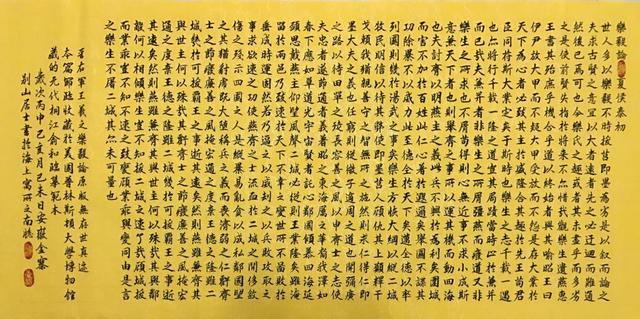 樂毅論 夏侯泰初
世人多以樂毅不時拔莒即墨為劣是以敘而論之
夫求古賢之意宜以大者遠者先之必迂迴而難通
然後已焉可也今樂氏之趣或者其未盡乎而多劣
之是使前賢失指於將來不亦惜哉觀樂生遺燕惠
王書其殆庶乎機合乎道以終始者與其喻昭王曰
伊尹放大甲而不疑大甲受放而不怨是存大業於
天下為心者必致其主於盛隆合其趣於先王苟君
臣同符斯大業定矣于斯時也樂生之志千載一遇
千載一隆之道豈其局蹟當時止於兼并
而已哉夫兼并者非樂生之所屑彊燕而廢道又非
樂生之所求也不屑苟得則心無近事不求小成斯
意兼天下者也則舉齊之事所以運其機而動四海
也夫討齊以明燕主之義此兵不興於為利矣圍城
而害不加於百姓此仁心著於遐邇矣舉國不謀其
功除暴不以威力此至德令於天下矣邁全德以率
列國則幾於湯武之事矣樂生方恢大綱以縱二城
收民明信以待其弊使即墨莒人顧仇其上願釋干
戈賴我猶親善守之智無所之施然則求仁得仁即
墨大夫之義也任窮則從微子適周之道也開彌廣
之路以待田單之徒長容善之風以申齊士之志使
夫忠者遂節通者義著昭之東海屬之華裔我澤如
春下應如草道光宇宙賢者託心鄰國傾慕四海延
頸思戴燕主仰望風聲二城必從則王業隆矣雖淹
留於兩邑乃致速於天下不幸之變世所不圖敗於
垂成時運固然若乃逼之以威劫之以兵則攻取之
事求欲速之功使燕齊之士流血於二城之間侈殺
傷之殘示四國之人是縱暴易亂貪以成私鄰國望
之其猶豺虎既大墮稱兵之義而喪濟弱之仁虧齊
士之節廢廉善之風掩宏通之度棄王德之隆雖二
城幾於可拔霸王之事逝其遠矣然則燕雖兼齊其
與世主何以殊哉其與鄰敵士之節廢廉善之風掩宏
通之度棄王德之隆雖二城幾於可拔霸王之事逝
其遠矣然則燕雖兼齊其與世主何以殊哉其與鄰
敵何以相傾樂生豈不知拔二城之速了哉顧城拔
而業乖豈不知不速之致變顧業乖與變同由是言
之樂生不屠二城其亦未可量也
右軍王羲之樂毅論原版無存世真迹
本篇節臨收藏於美國普林斯頓大學博物館
藏的元代桐江俞和臨摹
歲次丙申己亥月己未日安徽金寨
別山居士書於海上寫所之南牕